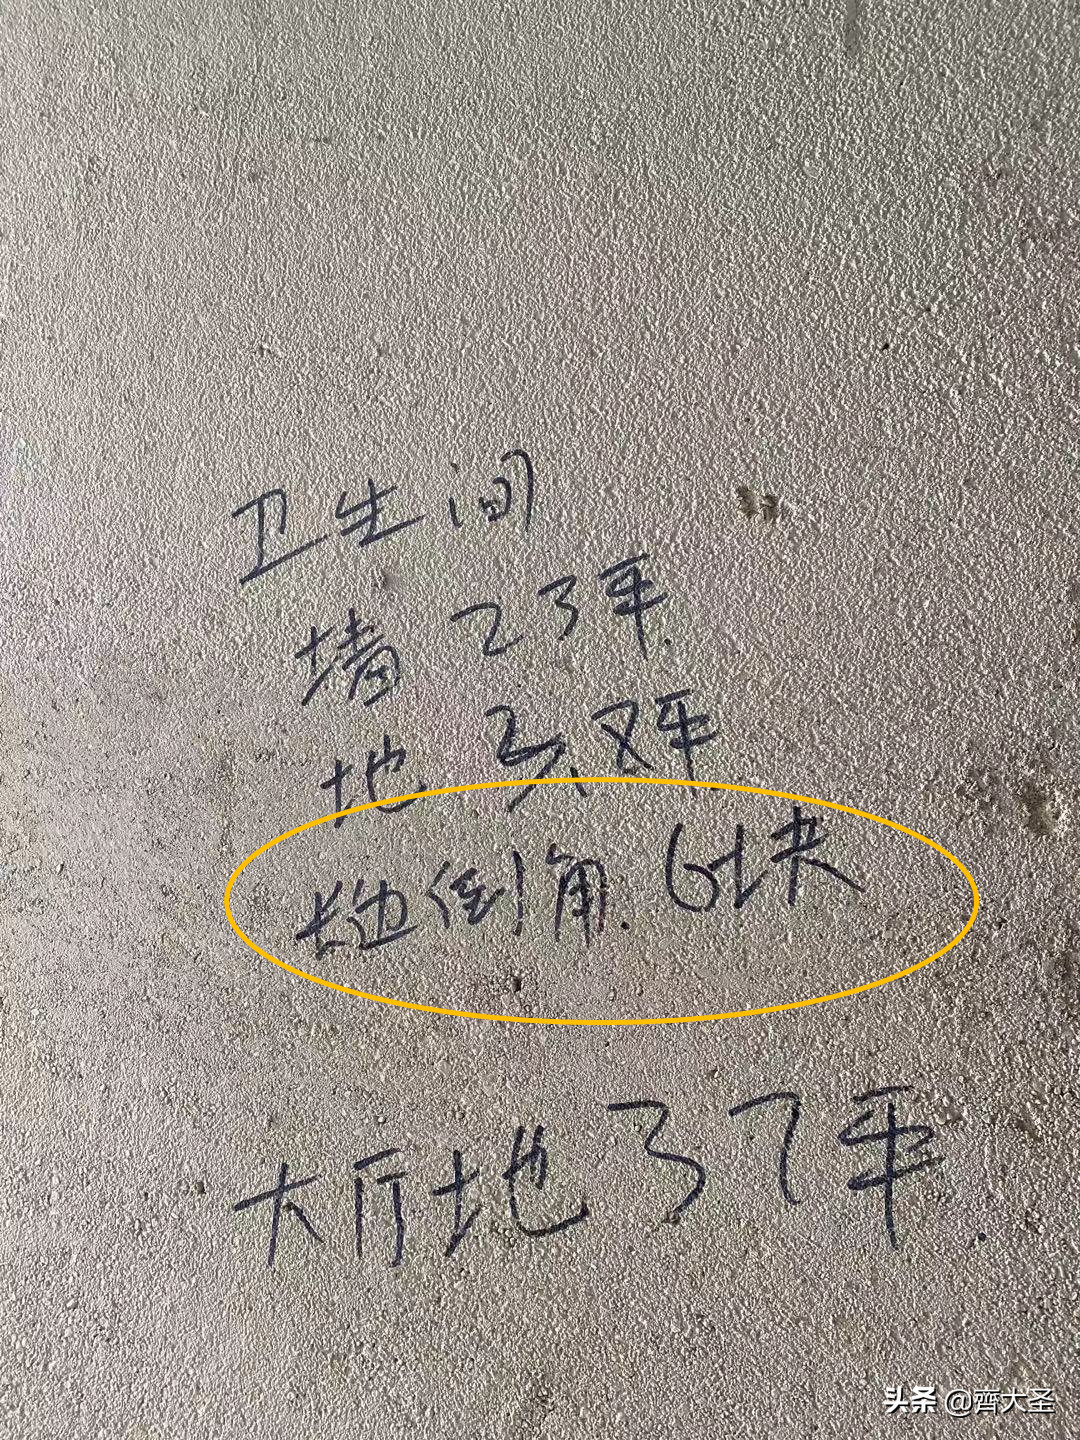 卫生间
墙 23平
地 双平
长边倒角. 6块
大厅地 37平.
头条 @齊大圣